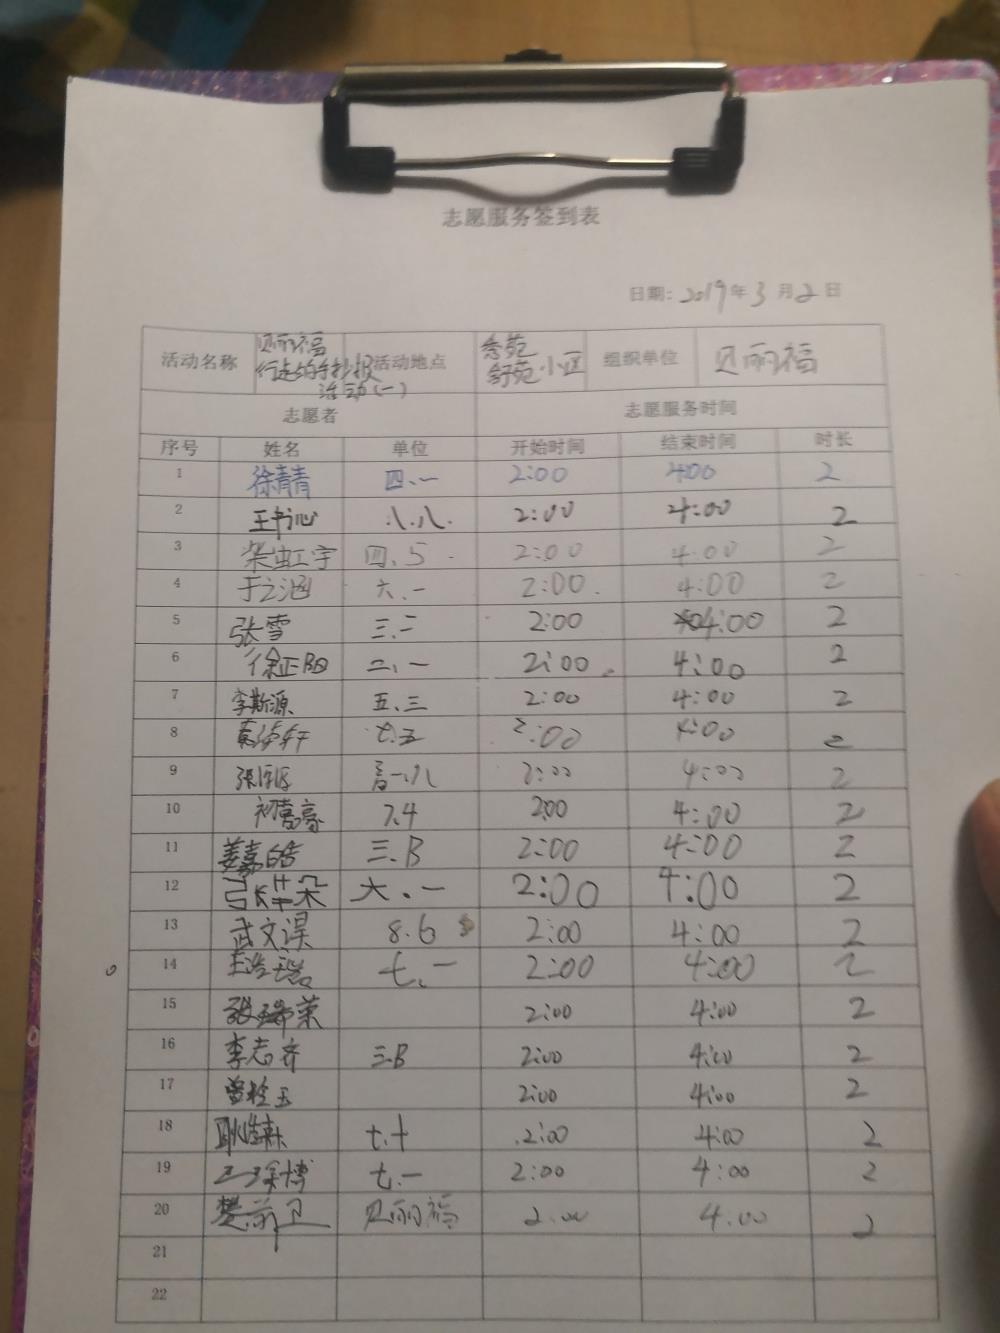 志愿服务签到表
日期: 2019年3月2日
活动名称 贝丽福 行走的手抄报 活动(一) 活动地点 秀苑 舒苑小区 组织单位 贝丽福
志愿者 志愿服务时间
序号 姓名 单位 开始时间 结束时间 时长
1 徐青青 四.一 2:00 4:00 2
2 王书沁 八.八. 2:00 4:00 2
3 四、5 2:00 4:00 2
4 于之涵 六.一 2:00 4:00 2
5 张雪 三.二 2:00 4:00 2
6 徐正阳 二.一 2:00 4:00 2
7 李斯源 五.三 2:00 4:00 2
8 七.五 2:00 4:00 2
9 2:00 4:00 2
10 初嘉豪 7.4 2:00 4:00 2
11 姜嘉皓 三.B 2:00 4:00 2
12 六.一 2:00 4:00 2
13 武文淏 8.6 2:00 4:00 2
14 七.一 2:00 4:00 2
15 2:00 4:00 2
16 李志齐 三.B 2:00 4:00 2
17 曾栓玉 2:00 4:00 2
18 七.十 2:00 4:00 2
19 七.一 2:00 4:00 2
20 樊前卫 贝丽福 2:00 4:00 2
21
22